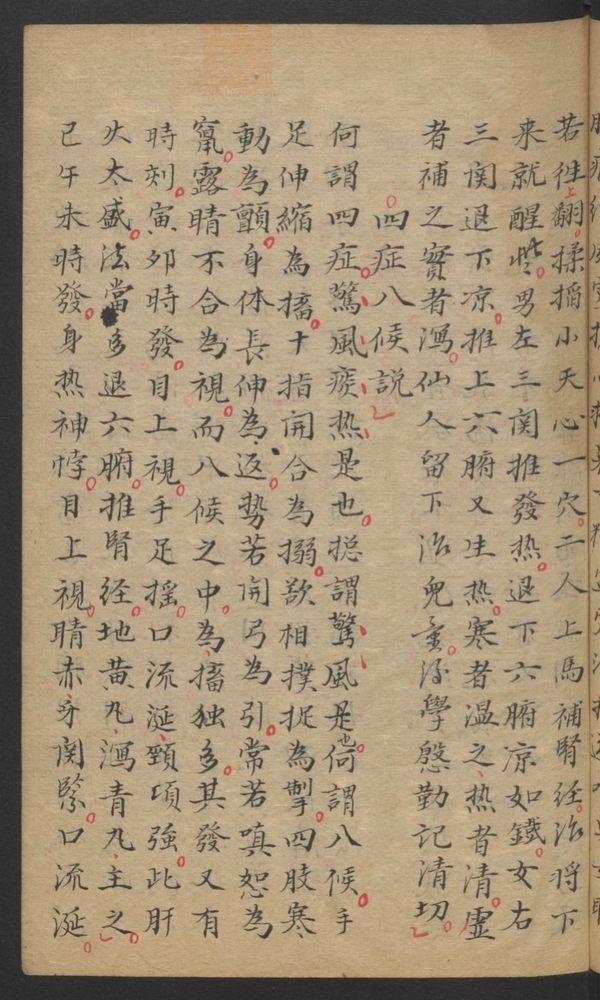 若往上翻。揉搯小天心一穴。二人上馬補腎経。治将下
来就醒些。男左三関推發热。退下六腑凉如鐵。女右
三関退下凉。推上六腑又生热。寒者温之、热者清。虚
者補之實者瀉。仙人留下治兒童。後學慇勤記清切。
四症八候説
何謂四症。驚、風、痰、热、是也。揔謂驚、風是也。何謂八候。手
足伸縮為搐。十指開合為搦。歘相撲捉為掣。四肢寒
動為顫。身体長伸為返。勢若開弓為引。常若嗔恕為
竄。露睛不合為視。而八候之中。為搐独多。其發又有
時刻。寅夘時發。目上視。手足揺。口流涎。頸項強。此肝
火太盛。法當多退六腑。推腎経。地黄丸、瀉青丸、主之。
已午未時發。身热神悖。目上視。睛赤、牙関緊。口流涎。